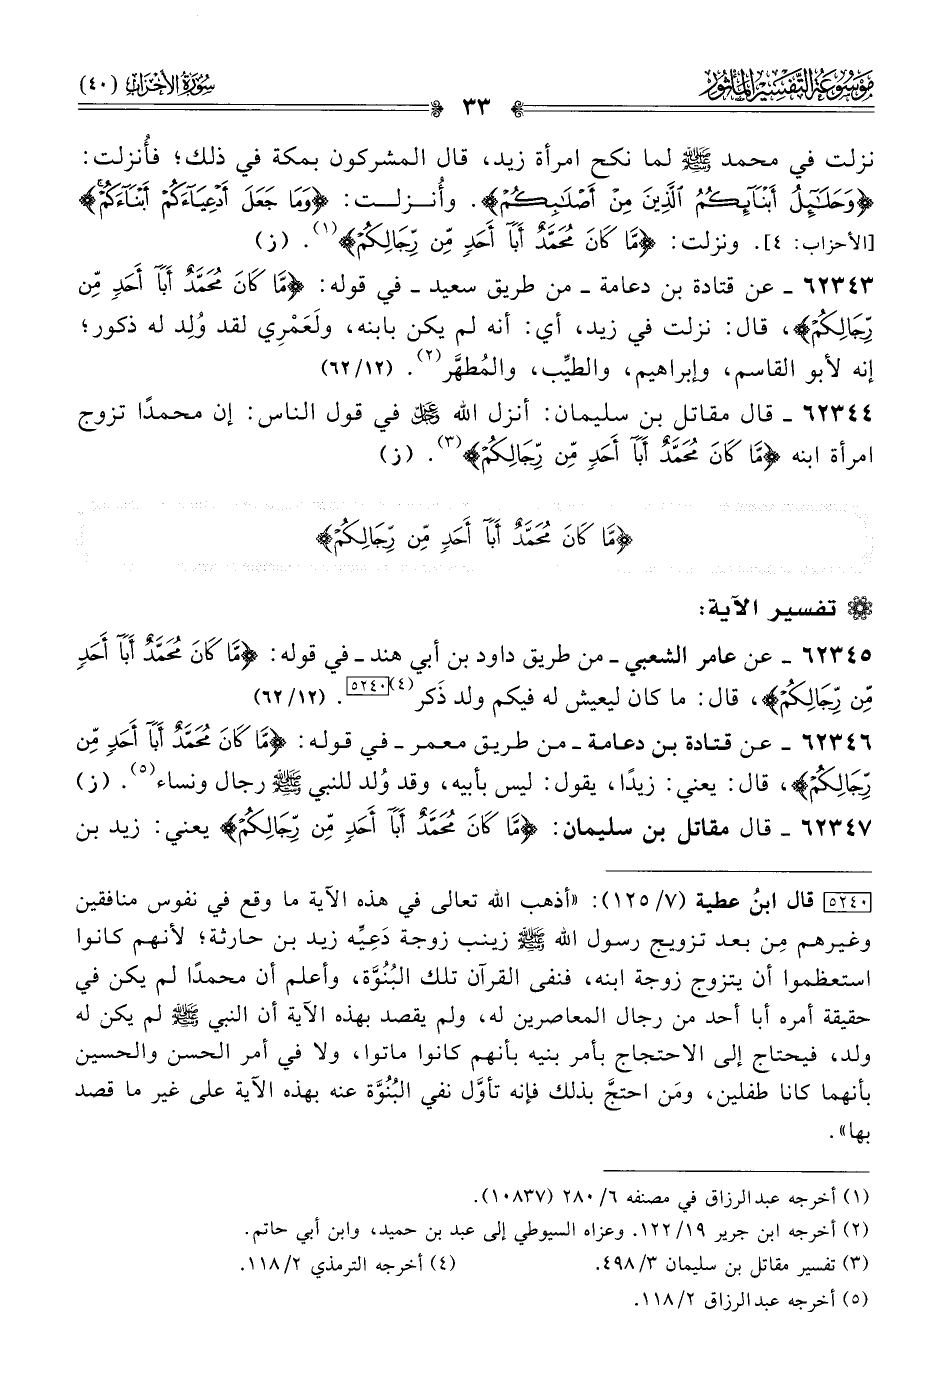 موسوعة التفسير المأثور
سورة الأحزاب (٤٠)
٣٣
نزلت في محمد ﷺ لما نكح امرأة زيد، قال المشركون بمكة في ذلك؛ فأُنزلت:
﴿وَحَلَٰٓئِلُ أَبْنَآئِكُمُ ٱلَّذِينَ مِنْ أَصْلَٰبِكُمْ﴾. وأُنــزلــت: ﴿وَمَا جَعَلَ أَدْعِيَآءَكُمْ أَبْنَآءَكُمْ﴾
[الأحزاب: ٤]. ونزلت: ﴿مَّا كَانَ مُحَمَّدٌ أَبَآ أَحَدٍ مِّن رِّجَالِكُمْ﴾(١). (ز)
٦٢٣٤٣ ـ عن قتادة بن دعامة ـ من طريق سعيد ـ في قوله: ﴿مَّا كَانَ مُحَمَّدٌ أَبَآ أَحَدٍ مِّن
رِّجَالِكُمْ﴾، قال: نزلت في زيد، أي: أنه لم يكن بابنه، ولَعَمْرِي لقد وُلِد له ذكور؛
إنه لأبو القاسم، وإبراهيم، والطيِّب، والمُطهَّر(٢). (١٢/ ٦٢)
٦٢٣٤٤ ـ قال مقاتل بن سليمان: أنزل الله ﷿ في قول الناس: إن محمدًا تزوج
امرأة ابنه ﴿مَّا كَانَ مُحَمَّدٌ أَبَآ أَحَدٍ مِّن رِّجَالِكُمْ﴾(٣). (ز)
﴿مَّا كَانَ مُحَمَّدٌ أَبَآ أَحَدٍ مِّن رِّجَالِكُمْ﴾
تفسير الآية:
٦٢٣٤٥ ـ عن عامر الشعبي ـ من طريق داود بن أبي هند ـ في قوله: ﴿مَّا كَانَ مُحَمَّدٌ أَبَآ أَحَدٍ
مِّن رِّجَالِكُمْ﴾، قال: ما كان ليعيش له فيكم ولد ذَكر(٤)[٥٢٤٠]. (١٢/ ٦٢)
٦٢٣٤٦ ـ عن قتادة بن دعامة ـ من طريق معمر ـ في قوله: ﴿مَّا كَانَ مُحَمَّدٌ أَبَآ أَحَدٍ مِّن
رِّجَالِكُمْ﴾، قال: يعني: زيدًا، يقول: ليس بأبيه، وقد وُلد للنبي ﷺ رجال ونساء(٥). (ز)
٦٢٣٤٧ ـ قال مقاتل بن سليمان: ﴿مَّا كَانَ مُحَمَّدٌ أَبَآ أَحَدٍ مِّن رِّجَالِكُمْ﴾ يعني: زيد بن
[٥٢٤٠] قال ابنُ عطية (٧/ ١٢٥): «أذهب الله تعالى في هذه الآية ما وقع في نفوس منافقين
وغيرهم مِن بعد تزويج رسول الله ﷺ زينب زوجة دَعِيِّه زيد بن حارثة؛ لأنهم كانوا
استعظموا أن يتزوج زوجة ابنه، فنفى القرآن تلك البُنُوَّة، وأعلم أن محمدًا لم يكن في
حقيقة أمره أبا أحد من رجال المعاصرين له، ولم يقصد بهذه الآية أن النبي ﷺ لم يكن له
ولد، فيحتاج إلى الاحتجاج بأمر بنيه بأنهم كانوا ماتوا، ولا في أمر الحسن والحسين
بأنهما كانا طفلين، ومَن احتجَّ بذلك فإنه تأوَّل نفي البُنُوَّة عنه بهذه الآية على غير ما قصد
بها».
(١) أخرجه عبدالرزاق في مصنفه ٦/ ٢٨٠ (١٠٨٣٧).
(٢) أخرجه ابن جرير ١٩/ ١٢٢. وعزاه السيوطي إلى عبد بن حميد، وابن أبي حاتم.
(٣) تفسير مقاتل بن سليمان ٣/ ٤٩٨. (٤) أخرجه الترمذي ٢/ ١١٨.
(٥) أخرجه عبدالرزاق ٢/ ١١٨.